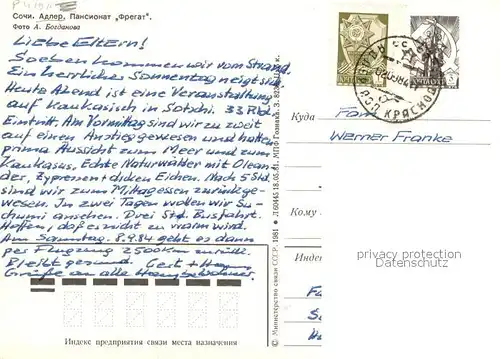 Сочи. Адлер. Пансионат „Фрегат".
Фото А. Богданова
Liebe Eltern!
Soeben kommen wir vom Strand.
Ein herrlicher Sonnentag neigt sich.
Heute Abend ist eine Veranstaltung
auf Kaukasisch in Sotschi. 33 Rbl
Eintritt. Am Vormittag sind wir zu zweit
auf einen Anstieg gewesen und hatten
prima Aussicht zum Meer und zum
Kaukasus. Echte Naturwälder mit Olean-
der, Zypressen + dicken Eichen. Nach 5 Std.
sind wir zum Mittagessen zurückge-
wesen. In zwei Tagen wollen wir Su-
chumi ansehen. Drei Std. Busfahrt.
Hoffen, daß es nicht zu warm wird.
Am Sonntag. 8.9.84 geht es dann
per Flugzeug 2500 km zurück.
Bleibt gesund. Gert +
Grüße an alle Hausbewohner.
Индекс предприятия связи места назначения
© Министерство связи СССР. 1981
Л 60445 18.05.81. МПФ Гознака. З.
КРАСНОД
Куда
Fam
Werner Franke
Кому
Индек
Fa
privacy protection
Datenschutz